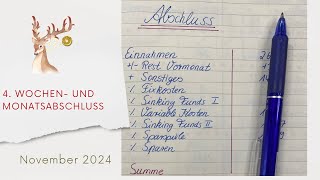 4. WOCHEN- UND
MONATSABSCHLUSS
November 2024
Abschluss
Einnahmen
+/- Rest Vormonat
+ Sonstiges
% Fixkosten
% Sinking Funds I
% Variable Kosten
% Sinking Funds II
% Spartöpfe
% Sparen
Summe